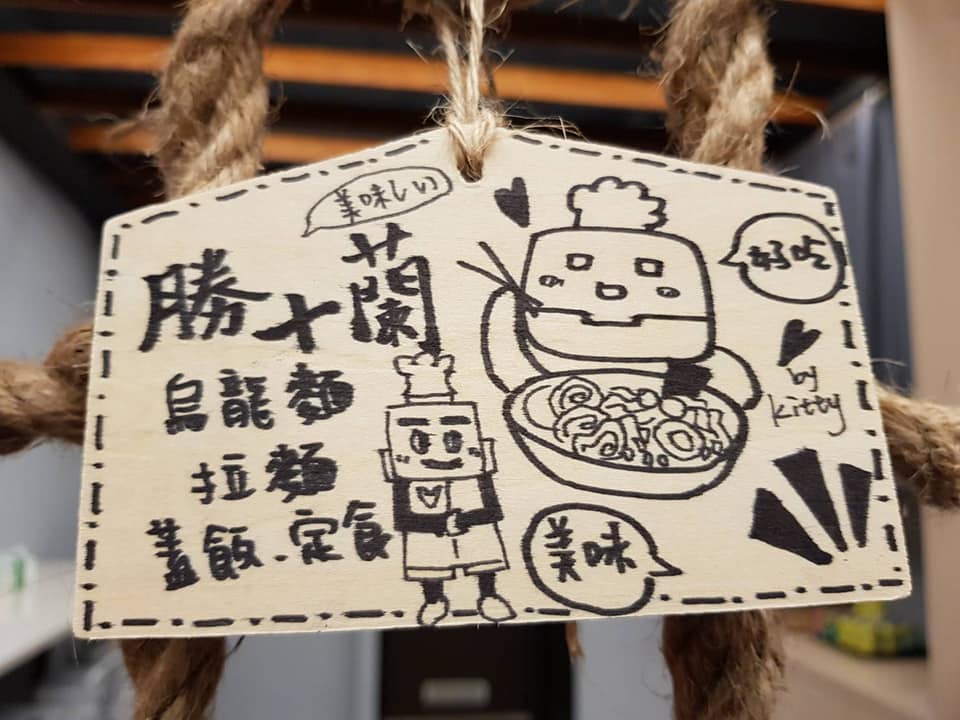 美味しい
勝十蘭
烏龍麵
拉麵
蓋飯.定食
好吃
by
kitty
美味